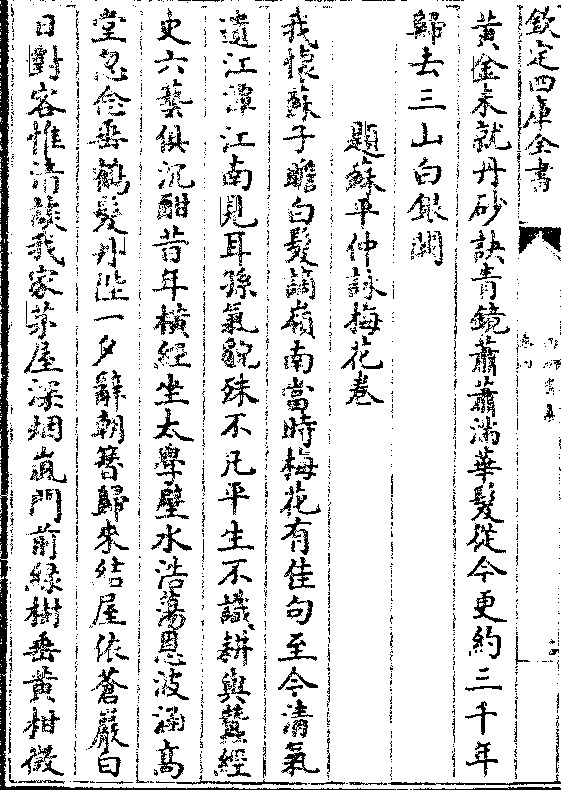 欽定四庫全書
黃金未就丹砂訣青鏡蕭蕭滿華髮從今更約三千年
歸去三山白銀闕
題蘇平仲詠梅花卷
我懷蘇子瞻白髮謫嶺南當時梅花有佳句至今清氣
遺江潭江南見耳孫氣貌殊不凡平生不識耕與蠶經
史六藝俱沉酣昔年橫經坐太學壁水浩蕩恩波涵高
堂忽念垂鶴髮丹陛一夕辭朝簪歸來結屋依蒼巖白
日對客惟清談我家茅屋深烟嵐門前綠樹垂黃柑微